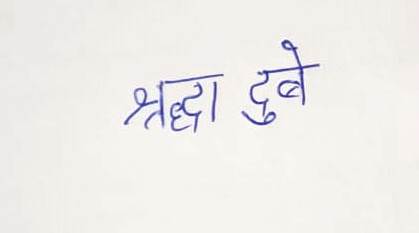 श्रद्धा दुबे